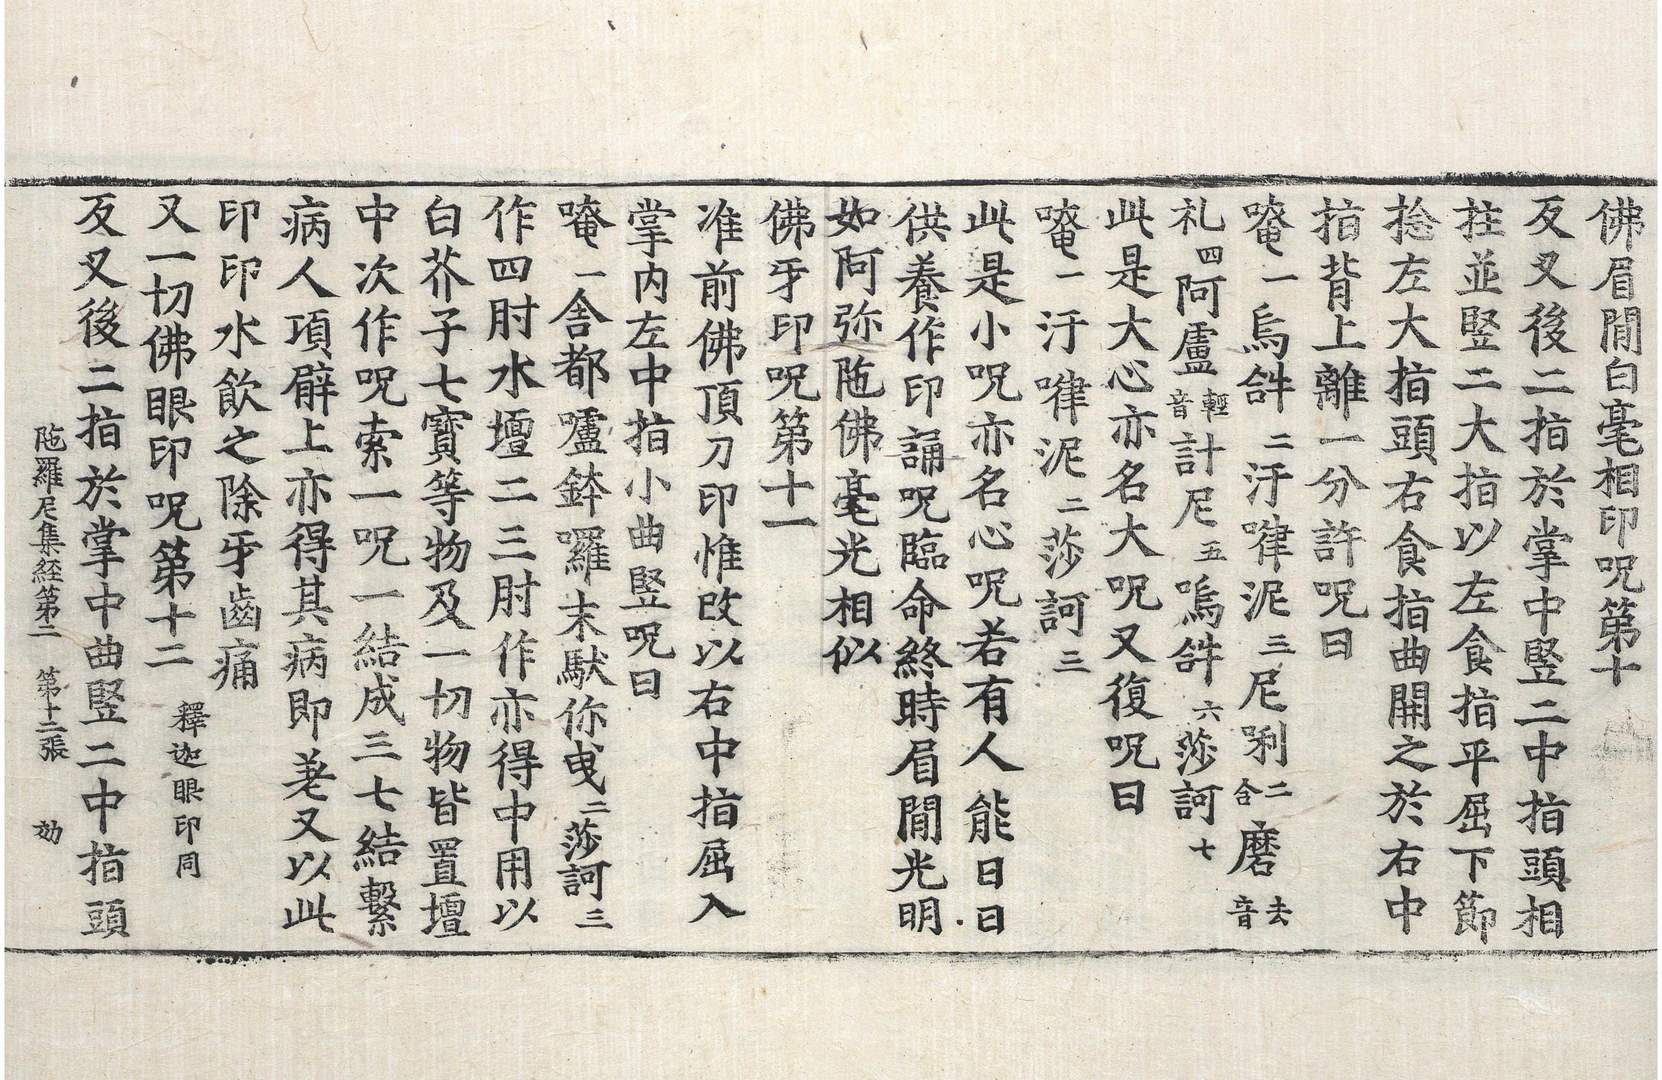 佛眉間白毫相印呪第十
反叉後二指於掌中竪二中指頭相
拄並竪二大指以左食指平屈下節
捻左大指頭右食指曲開之於右中
指背上離一分許呪曰
唵一烏𤙖二汙㗚泥三尼唎二合磨去音
礼四阿盧輕音計尼五嗚𤙖六莎訶七
此是大心亦名大呪又復呪曰
唵一汙㗚泥二莎訶三
此是小呪亦名心呪若有人能日日
供養作印誦呪臨命終時眉間光明
如阿弥陁佛毫光相似
佛牙印呪第十一
准前佛頂刀印惟改以右中指屈入
掌内左中指小曲竪呪曰
唵一舍都嚧鉢囉末馱你曳二莎訶三
作四肘水壇二三肘作亦得中用以
白芥子七寶等物及一切物皆置壇
中次作呪索一呪一結成三七結繫
病人項臂上亦得其病即差又以此
印印水飲之除牙齒痛
又一切佛眼印呪第十二釋迦眼印同
反叉後二指於掌中曲竪二中指頭
陁羅尼集経第二　第十二張　効